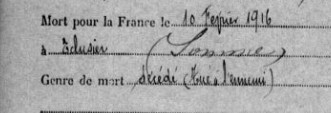 Mort pour la France le 10 Février 1916
à Eclusier (Somme)
Genre de mort décédé (tué à l'ennemi)